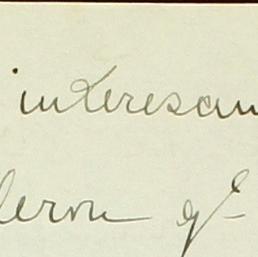 interesan
leron qe